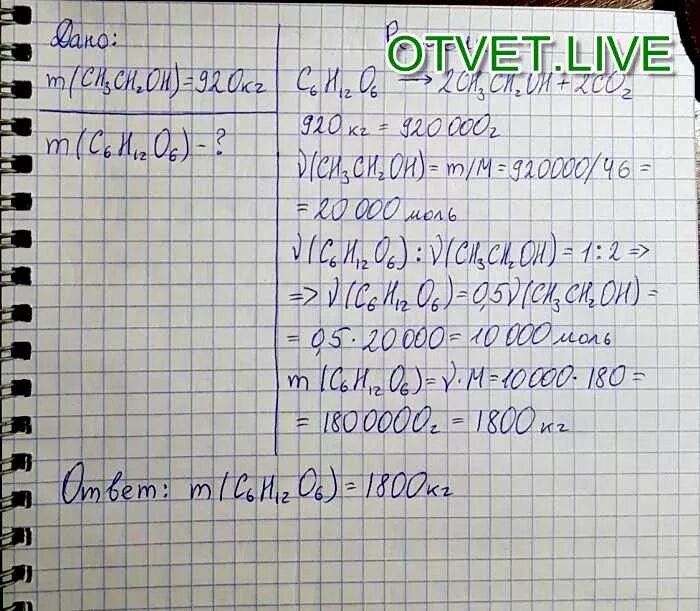 Дано:
m(CH₃CH₂OH)=920кг
m(C₆H₁₂O₆)-?
OTVET.LIVE
C₆H₁₂O₆ → 2CH₃CH₂OH+2CO₂
920кг = 920 000г
ν(CH₃CH₂OH)=m/M=920000/46=
=20 000 моль
ν(C₆H₁₂O₆):ν(CH₃CH₂OH)=1:2=>
=> ν(C₆H₁₂O₆)=0,5ν(CH₃CH₂OH)=
=0,5·20 000=10 000 моль
m(C₆H₁₂O₆)=ν·M=10000·180=
= 1800000г = 1800 кг
Ответ: m(C₆H₁₂O₆)=1800кг